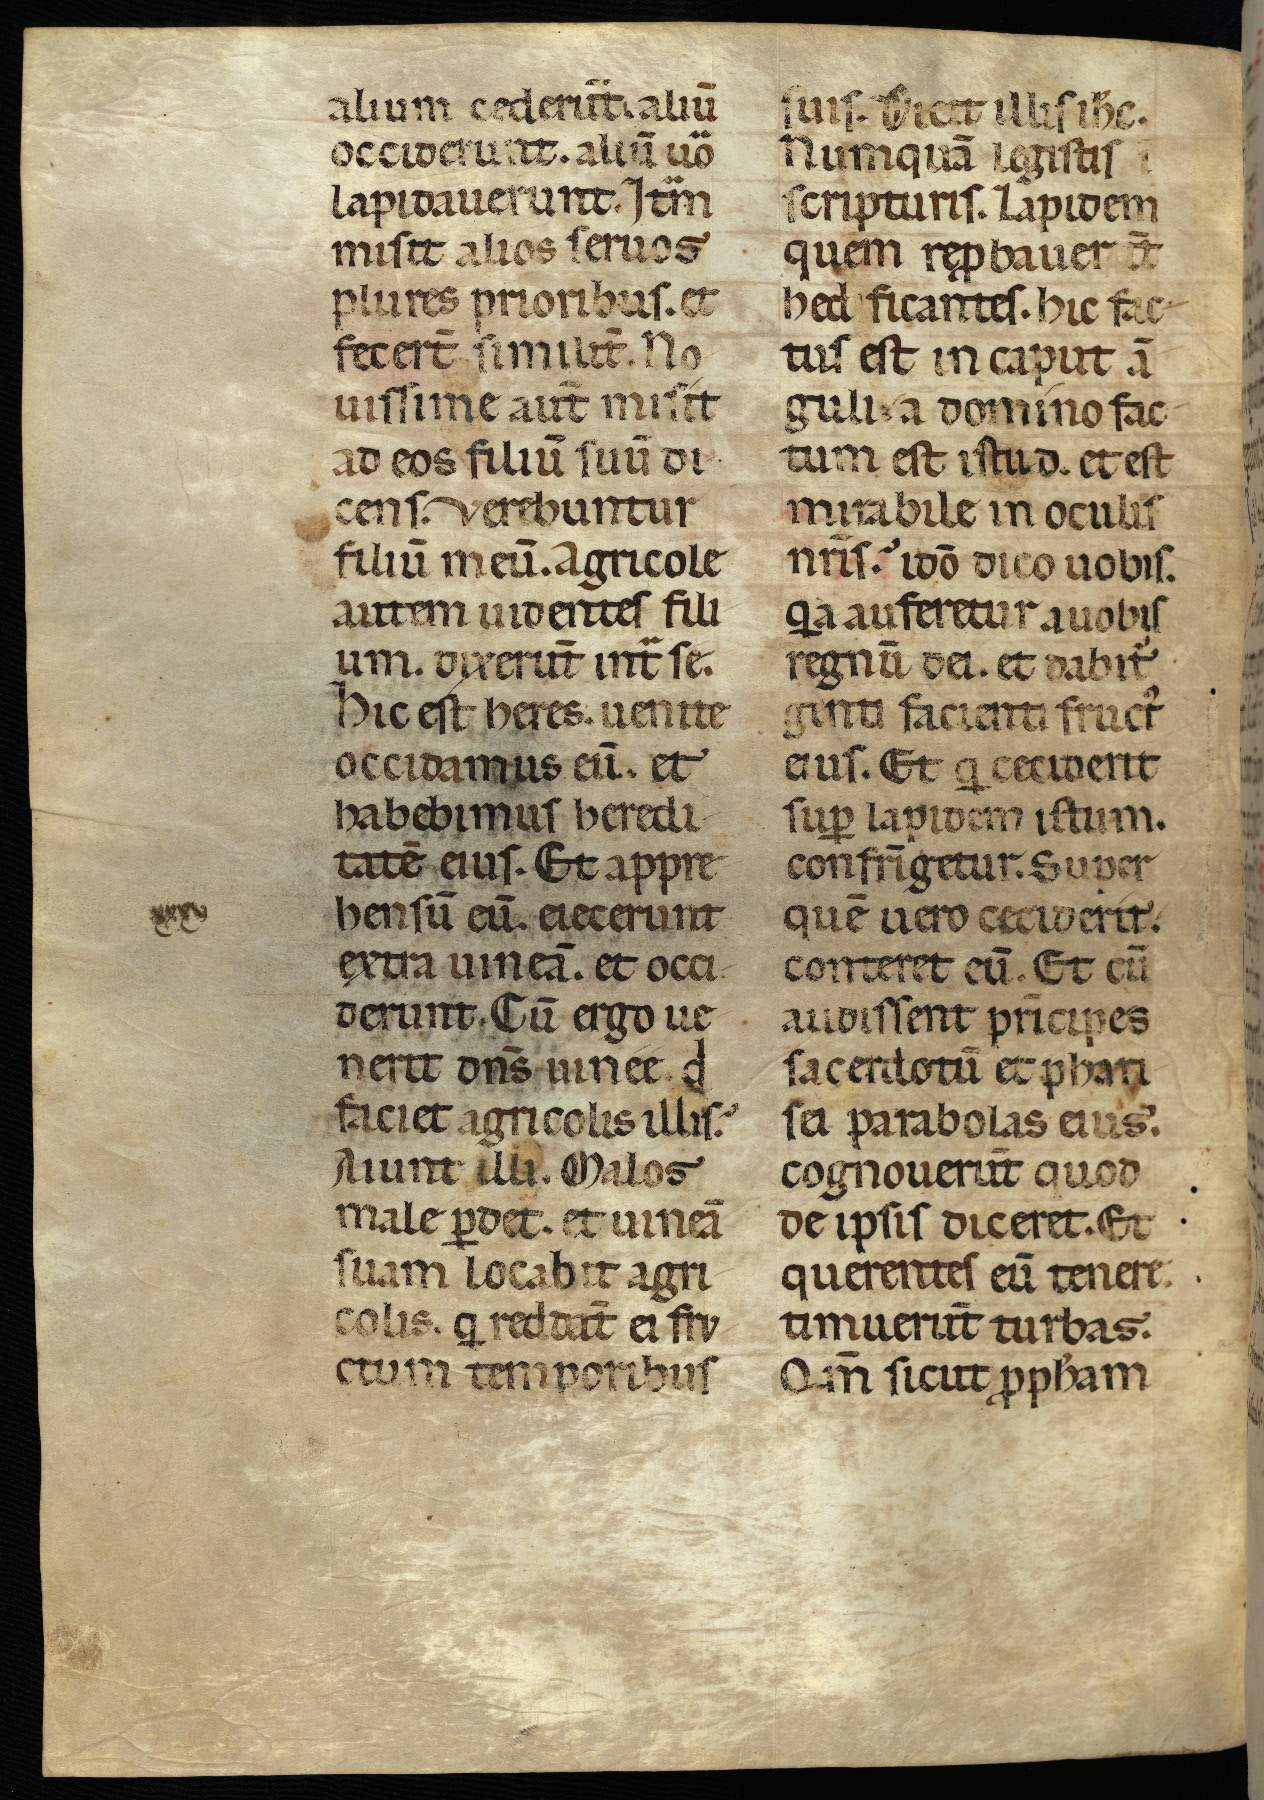 alium cederūt. aliū
occiderunt. aliū uō
lapidauerunt. Itm̄
misit alios seruos
plures prioribus. et
fecert̄ similit̄. No
uissime aut̄ misit
ad eos filiū suū di
cens. Verebuntur
filiū meū. Agricole
autem uidentes fili
um. dixerūt int̄ se.
Hic est heres. uenite
occidamus eū. et
habebimus heredi
tatē eius. Et appre
hensū eū. eiecerunt
extra uineā. et occi
derunt. Cū ergo ue
nerit dn̄s uinee. q̇d
faciet agricolis illis.
Aiunt illi. Malos
male ꝑdet. et uineā
suam locabit agri
colis. q̇ reddāt ei fru
ctum temporibus
suis. Dicit illis ih̄c.
Numquā legistis ī
scripturis. Lapidem
quem reꝓbauerūt
hedificantes. hic fac
tus est in caput ā
guli. a domino fac
tum est istud. et est
mirabile in oculis
nr̄is. idō dico uobis.
qa auferetur a uobis
regnū dei. et dabit᷑
genti facienti fruct᷒
eius. Et q̇ ceciderit
suꝑ lapidem istum.
confrīgetur. Super
quē uero ceciderit.
conteret eū. Et cū
audissent prīcipes
sacerdotū et phari
sei parabolas eius.
cognouerūt quod
de ipsis diceret. Et
querentes eū tenere.
timuerūt turbas.
Qm̄ sicut ꝓpħam